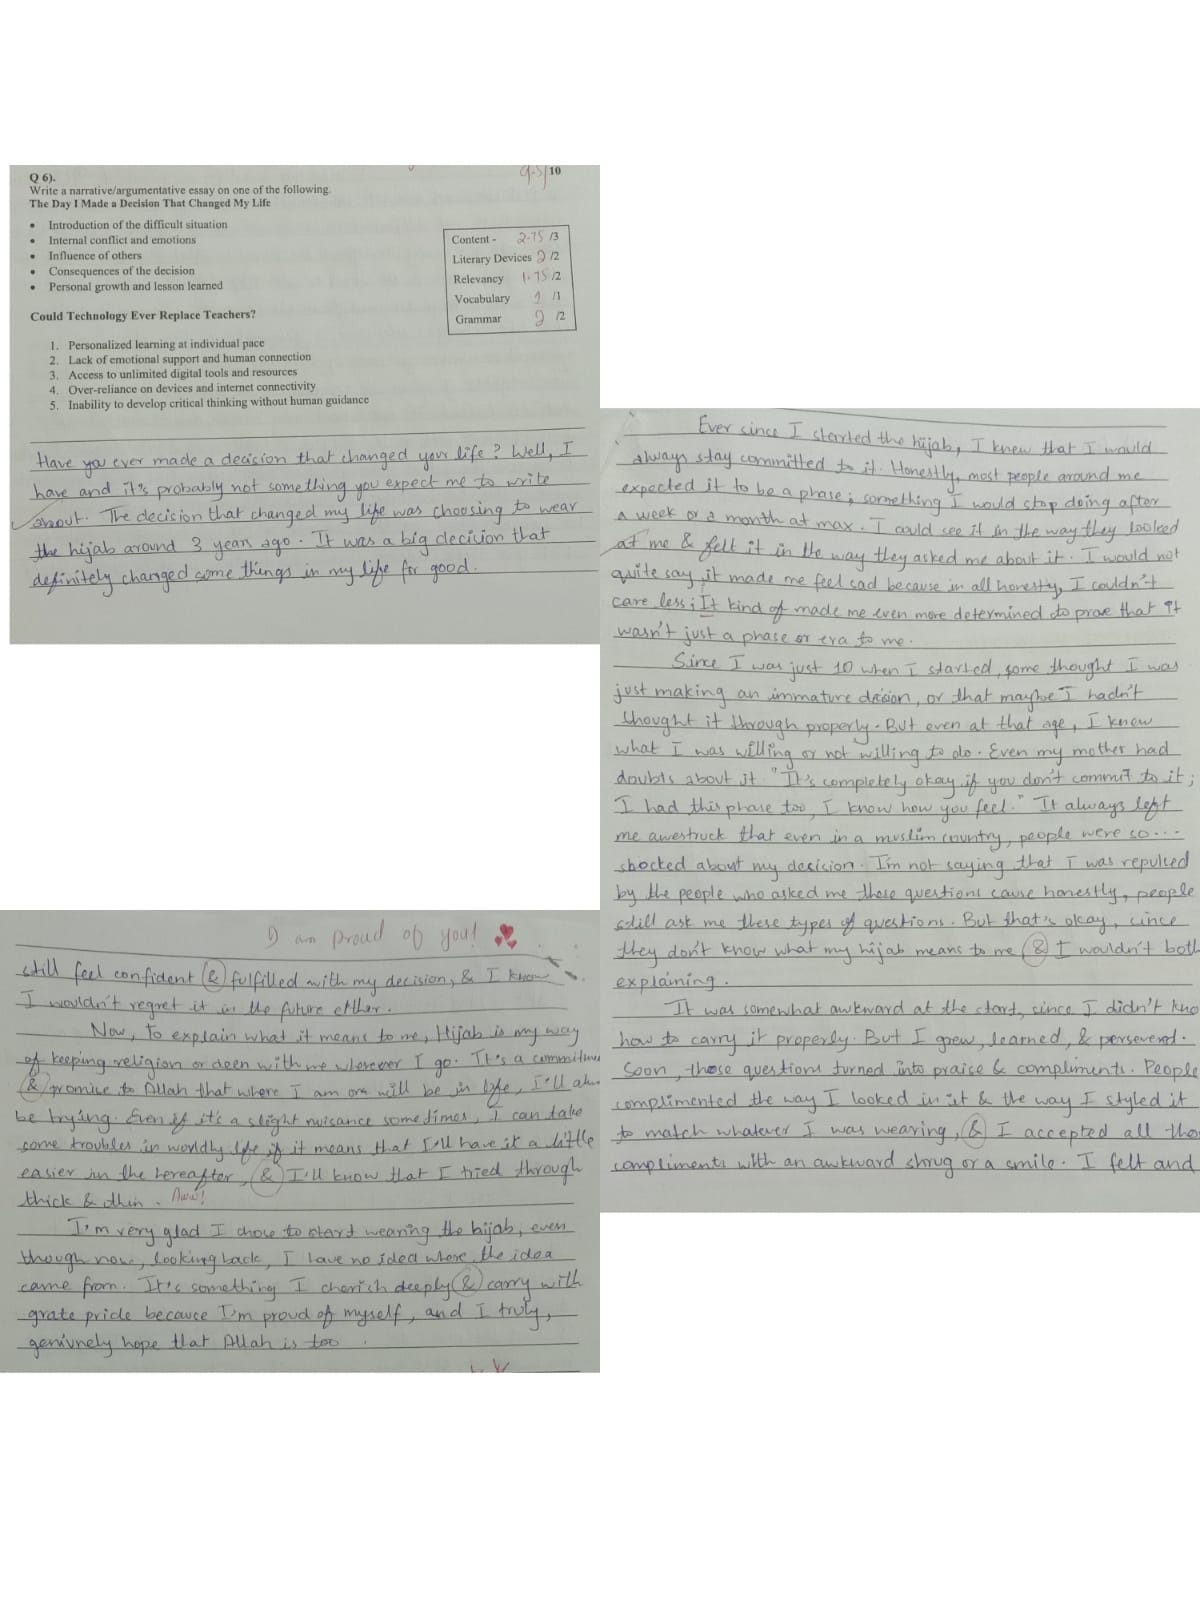 Q 6).
9.5/10
Write a narrative/argumentative essay on one of the following.
The Day I Made a Decision That Changed My Life
• Introduction of the difficult situation
• Internal conflict and emotions
• Influence of others
• Consequences of the decision
• Personal growth and lesson learned
Content - 2.75 /3
Literary Devices 2 /2
Relevancy 1.75 /2
Vocabulary 1 /1
Grammar 2 /2
Could Technology Ever Replace Teachers?
1. Personalized learning at individual pace
2. Lack of emotional support and human connection
3. Access to unlimited digital tools and resources
4. Over-reliance on devices and internet connectivity
5. Inability to develop critical thinking without human guidance
Have you ever made a decision that changed your life? Well, I
have and it's probably not something you expect me to write
about. The decision that changed my life was choosing to wear
the hijab around 3 years ago. It was a big decision that
definitely changed some things in my life for good.
Ever since I started the hijab, I knew that I would
always stay committed to it. Honestly, most people around me
expected it to be a phase; something I would stop doing after
a week or a month at max. I could see it in the way they looked
at me & felt it in the way they asked me about it. I would not
quite say it made me feel sad because in all honesty, I couldn't
care less; It kind of made me even more determined to prove that it
wasn't just a phase or era to me.
Since I was just 10 when I started, some thought I was
just making an immature decision, or that maybe I hadn't
thought it through properly. But even at that age, I knew
what I was willing or not willing to do. Even my mother had
doubts about it. "It's completely okay if you don't commit to it;
I had this phase too, I know how you feel." It always left
me awestruck that even in a muslim country, people were so...
shocked about my decision. I'm not saying that I was repulsed
by the people who asked me those questions cause honestly, people
still ask me these types of questions. But that's okay, since
they don't know what my hijab means to me, & I wouldn't both
explaining.
It was somewhat awkward at the start, since I didn't kno
how to carry it properly. But I grew, learned, & persevered.
Soon, those questions turned into praise & compliments. People
complimented the way I looked in it & the way I styled it
to match whatever I was wearing, & I accepted all tho
compliments with an awkward shrug or a smile. I felt and
I am proud of you!
still feel confident & fulfilled with my decision, & I know
I wouldn't regret it in the future either.
Now, to explain what it means to me, Hijab is my way
of keeping religion or deen with me wherever I go. It's a commitme
& promise to Allah that where I am or will be in life, I'll alw
be trying. Even if it's a slight nuisance sometimes, I can take
some troubles in worldly life if it means that I'll have it a little
easier in the hereafter, & I'll know that I tried through
thick & thin. Aww!
I'm very glad I chose to start wearing the hijab, even
though now, looking back, I have no idea where the idea
came from. It's something I cherish deeply & carry with
grate pride because I'm proud of myself, and I truly,
genivnely hope that Allah is too.